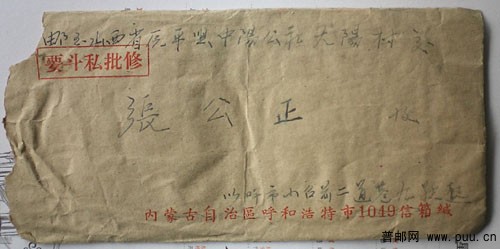 邮至山西省原平县中陽公社大陽村交
要斗私批修
張公正 收
呼市小台前二道巷
内蒙古自治區呼和浩特市1049信箱缄
普邮网 www.puu.cn